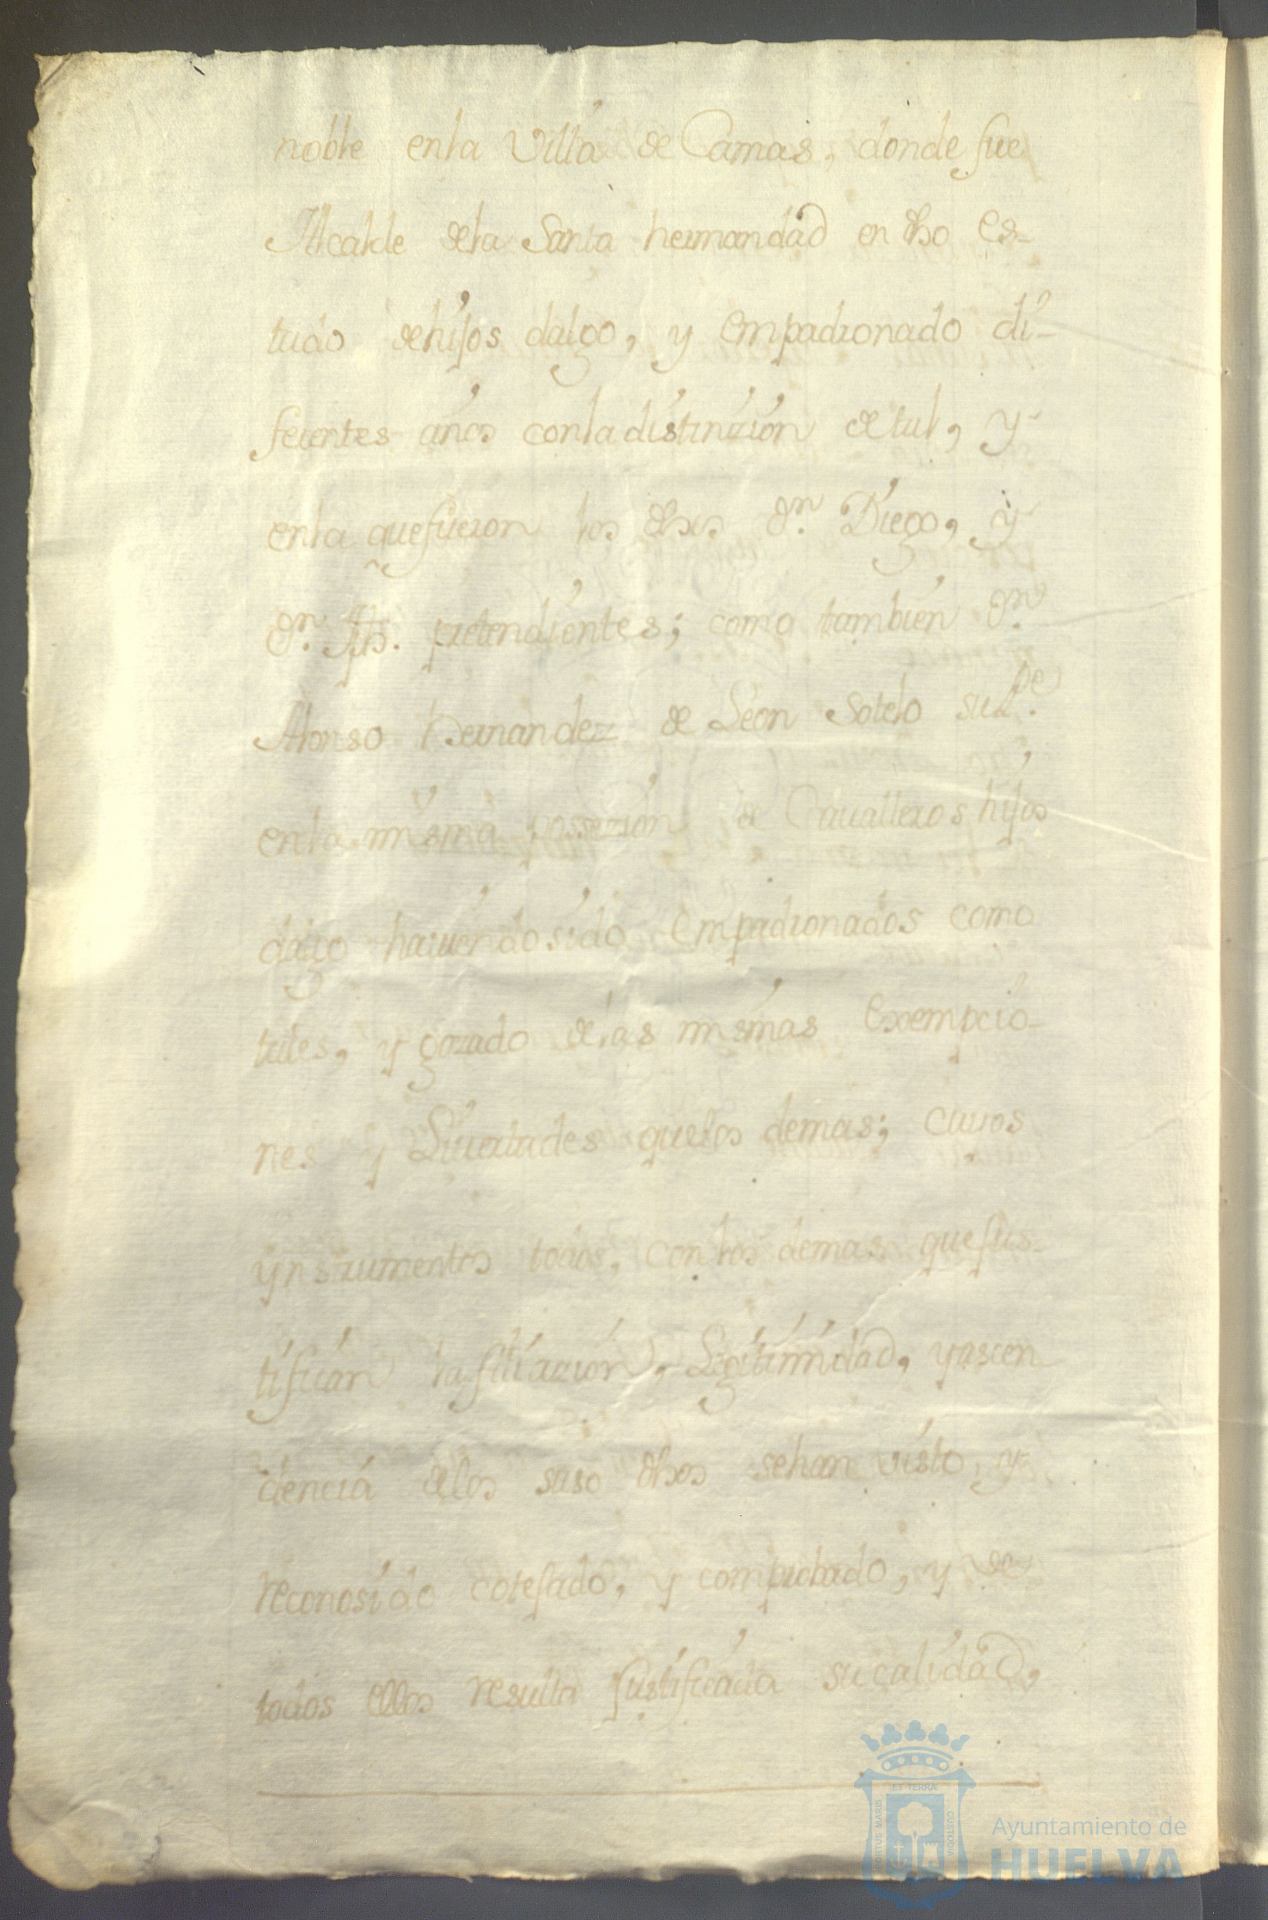 noble enla Villa de Camas, donde fue
Alcalde dela Santa hermandad en dho es-
tado dehijos dalgo, y empadronado di-
ferentes años conladistinzion detal, y
enla quefueron los dhos dn. Diego, y
dn. Jph. pretendientes; como tambien dn.
Alonso Hernandez de Leon Sotelo su Pe.
enla misma possezion de Cavalleros hijos
dalgo haviendosido empadronados como
tales, y gozado delas mismas exempcio-
nes y Livertades quelos demas; cuios
ynstrumentos todos, conlos demas quejus-
tifican lafiliazion, Legitimidad, yascen
dencia delos suso dhos sehan visto, y
reconosido cotejado, y comprobado, y de
todos ellos resulta justificada sucalidad,
ET TERRA
PORTUS MARIS
CUSTODIA
Ayuntamiento de
HUELVA